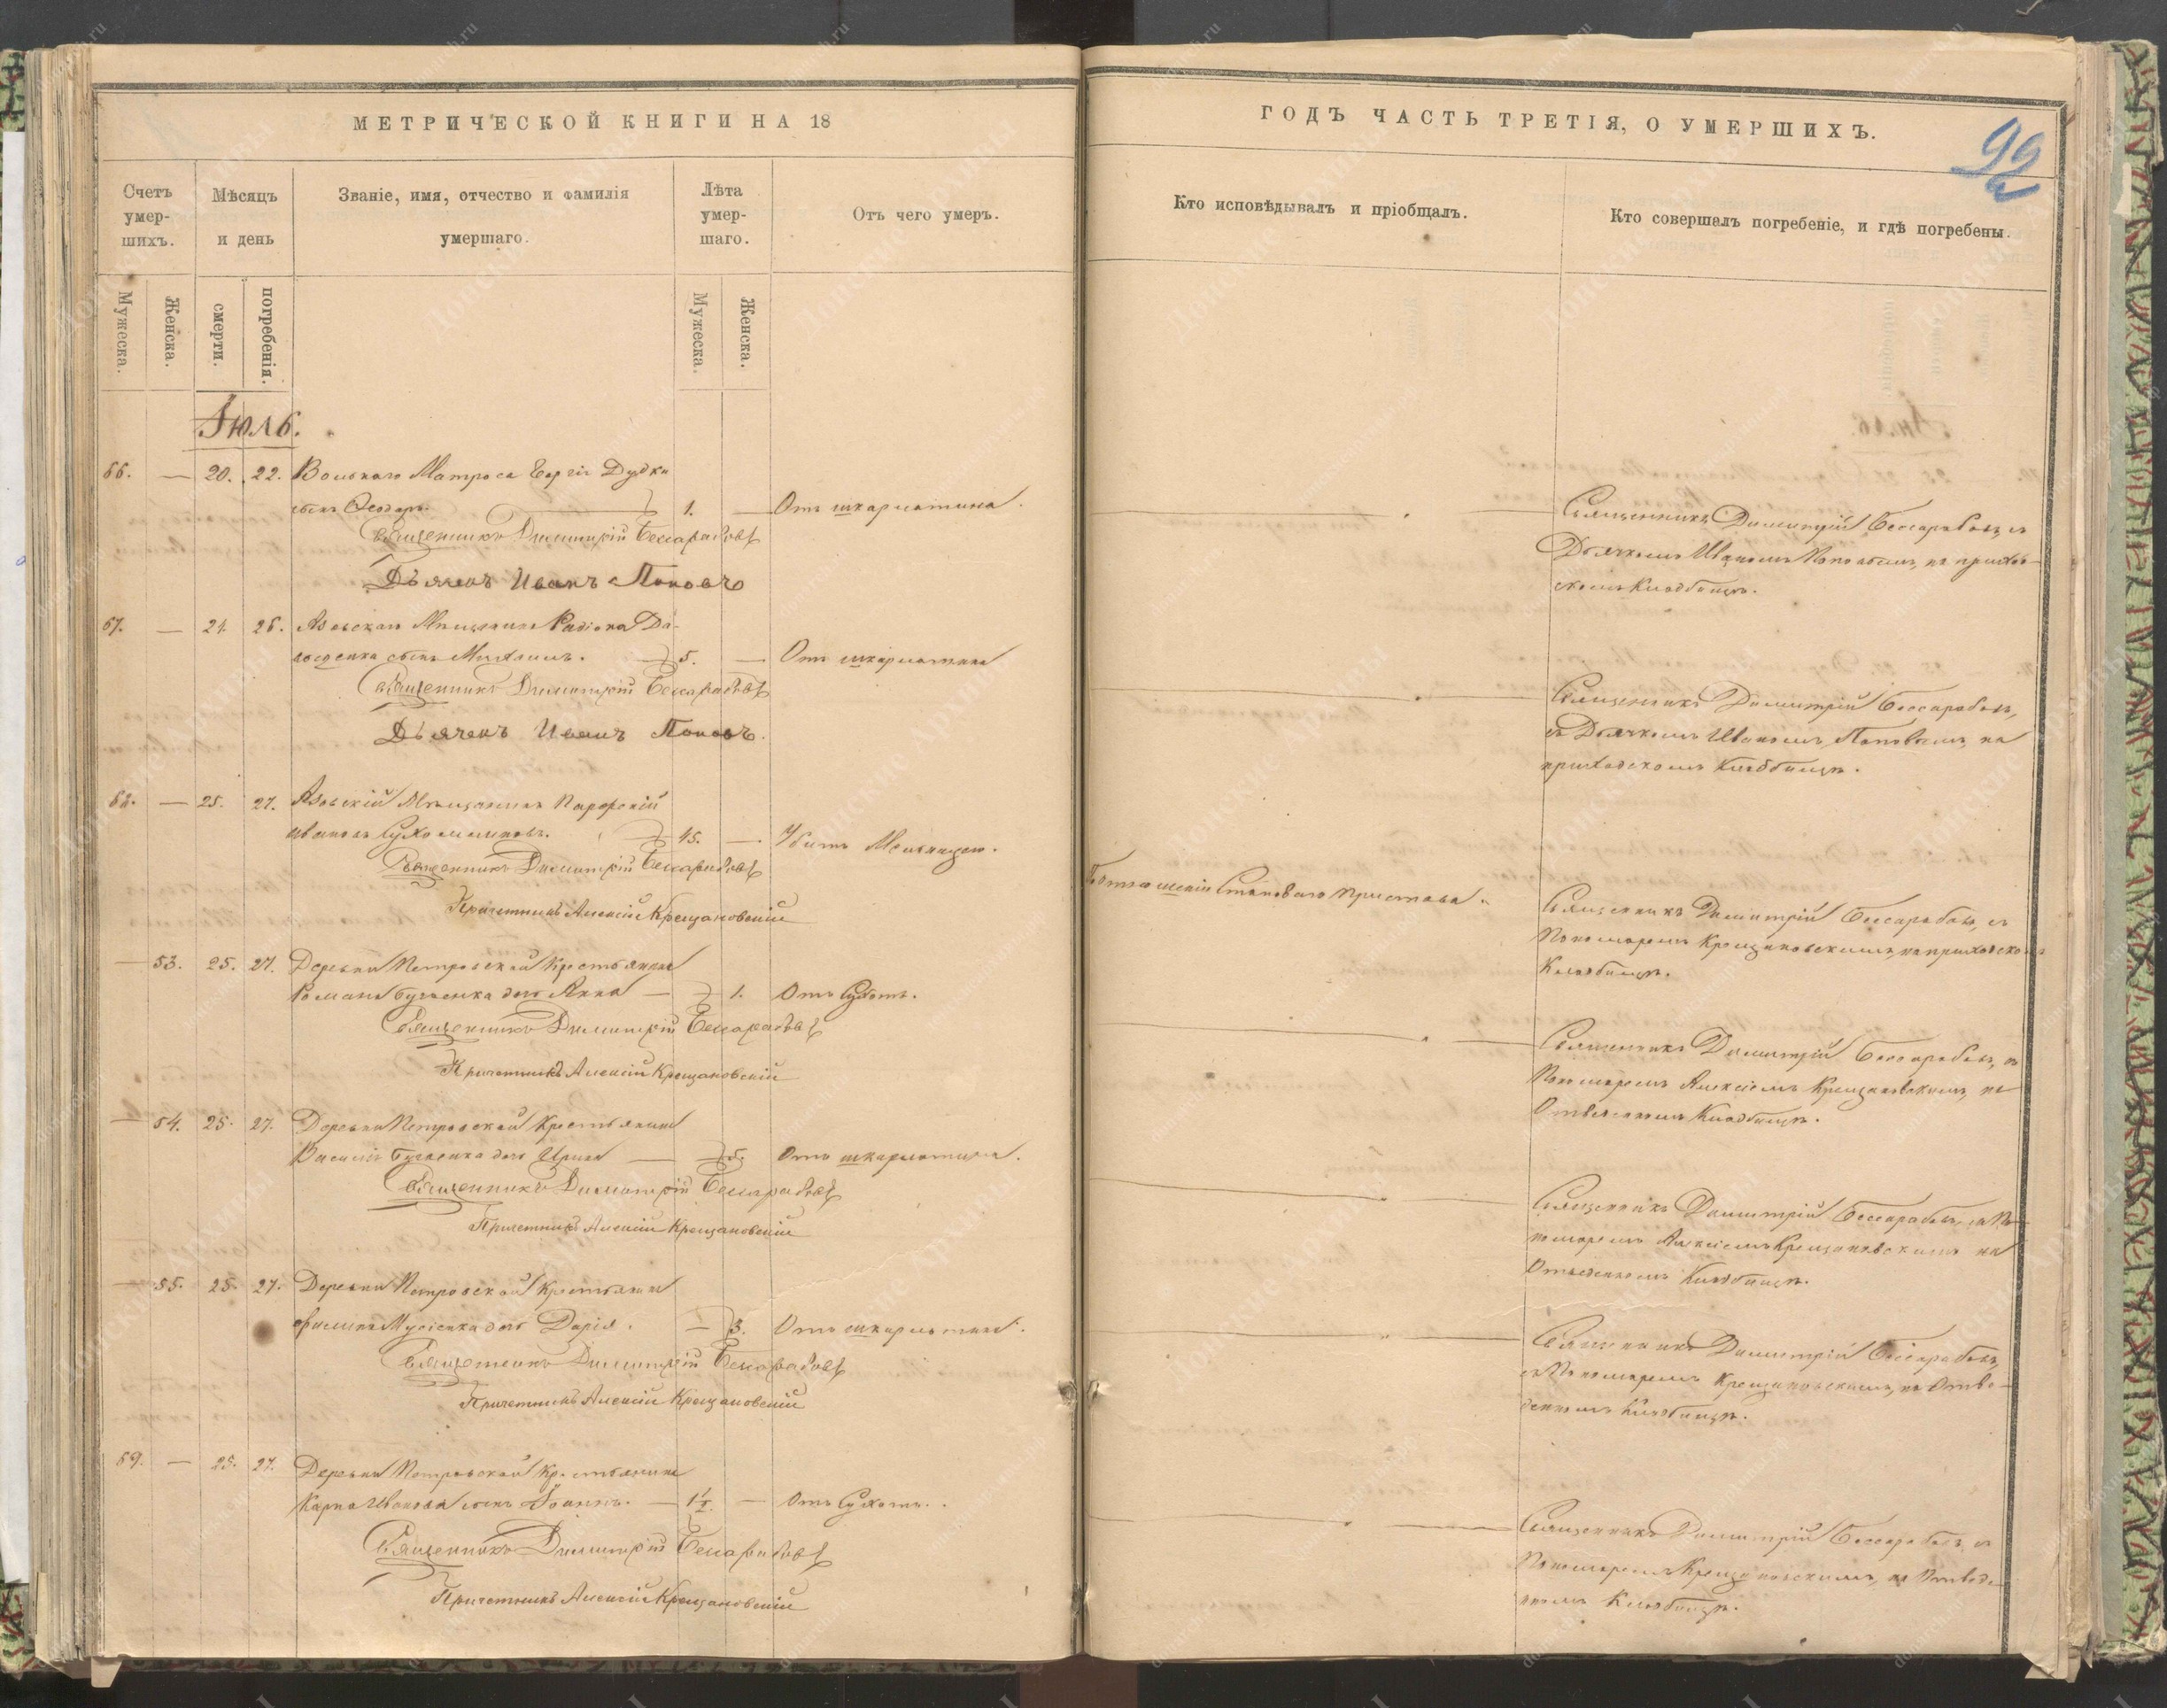 МЕТРИЧЕСКОЙ КНИГИ НА 18
ГОДЪ ЧАСТЬ ТРЕТІЯ, О УМЕРШИХЪ.
92
Счетъ умер-
шихъ.
Мѣсяцъ
и день
Званіе, имя, отчество и фамилія
умершаго.
Лѣта
умер-
шаго.
Отъ чего умеръ.
Кто исповѣдывалъ и пріобщалъ.
Кто совершалъ погребеніе, и гдѣ погребены.
Мужеска.
Женска.
смерти.
погребенія.
Мужеска.
Женска.
Іюль.
66. — 20. 22. Матроса Георгія Дудки
сынъ Ѳеодоръ. 1. — Отъ шкарлатина.
Священникъ Димитрій Бессарабовъ
Дьячекъ Иванъ Поповъ
Священникъ Димитрій Бессарабовъ, съ
Дьячкомъ Иваномъ Поповымъ, на приход-
скомъ Кладбищѣ.
67. — 24. 26. Азовскаго Мѣщанина Родіона Да-
виденка сынъ Михаилъ. 5. — Отъ шкарлатина
Священникъ Димитрій Бессарабовъ
Дьячекъ Иванъ Поповъ.
Священникъ Димитрій Бессарабовъ,
съ Дьячкомъ Иваномъ Поповымъ, на
приходскомъ Кладбищѣ.
68. — 25. 27. Азовскій Мѣщанинъ
Ивановъ Сухомлиновъ. 45. — Убитъ Мельницею.
Священникъ Димитрій Бессарабовъ
Причетникъ Алексій Крещановскій
Становаго Пристава.
Священникъ Димитрій Бессарабовъ, съ
Пономаремъ Крещановскимъ, на приходско
Кладбищѣ.
— 53. 25. 27. Деревни Петровской Крестьянина
Романа дочь Анна — 1. Отъ Сухотъ.
Священникъ Димитрій Бессарабовъ
Причетникъ Алексій Крещановскій
Священникъ Димитрій Бессарабовъ, съ
Пономаремъ Алексіемъ Крещановскимъ, на
Отведенномъ Кладбищѣ.
— 54. 25. 27. Деревни Петровской Крестьянина
Василія дочь — 5. Отъ шкарлатина.
Священникъ Димитрій Бессарабовъ
Причетникъ Алексій Крещановскій
Священникъ Димитрій Бессарабовъ, съ По-
номаремъ Алексіемъ Крещановскимъ на
Отведенномъ Кладбищѣ.
— 55. 25. 27. Деревни Петровской Крестьянина
Филипа дочь Дарія. — 3. Отъ шкарлатина.
Священникъ Димитрій Бессарабовъ
Причетникъ Алексій Крещановскій
Священникъ Димитрій Бессарабовъ,
съ Пономаремъ Крещановскимъ, на Отве-
денномъ Кладбищѣ.
69. — 25. 27. Деревни Петровской Крестьянина
Карпа Иванова сынъ Іоаннъ. — 1½. — Отъ Сухотъ.
Священникъ Димитрій Бессарабовъ
Причетникъ Алексій Крещановскій
Священникъ Димитрій Бессарабовъ, съ
Пономаремъ Крещановскимъ, на Отведе-
нномъ Кладбищѣ.